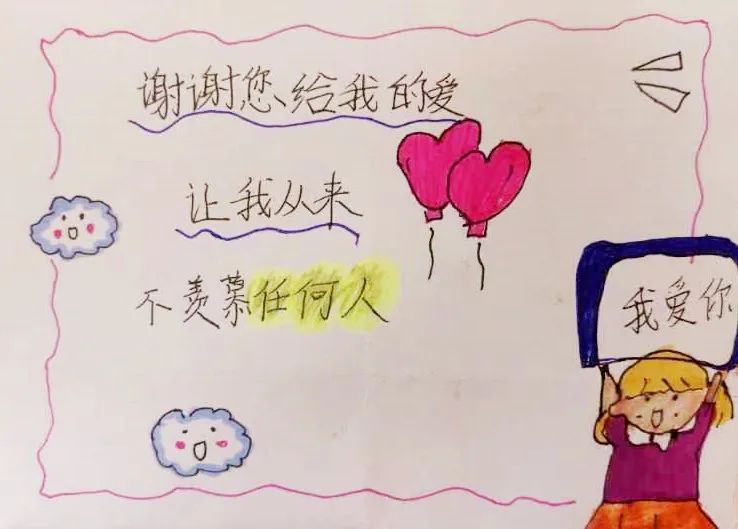 谢谢您给我的爱
让我从来
不羡慕任何人
我爱你